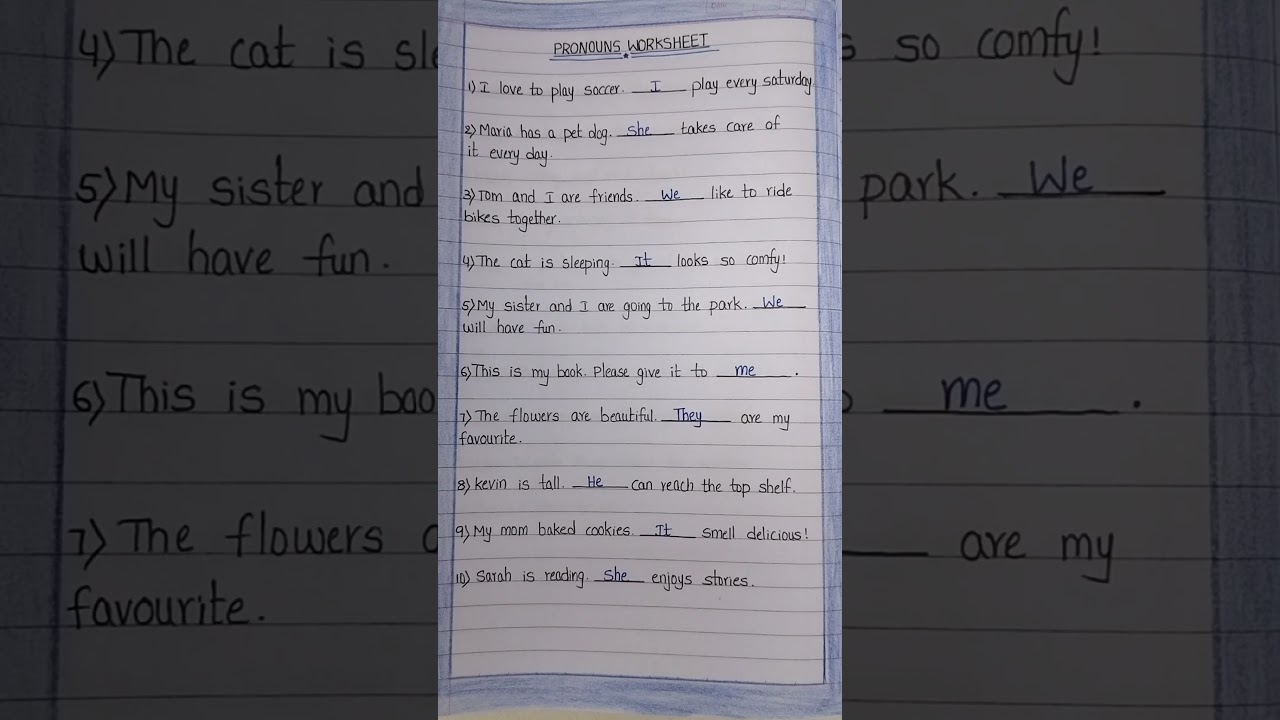 PRONOUNS WORKSHEET
1) I love to play soccer. I play every saturday.
2) Maria has a pet dog. she takes care of
it every day.
3) Tom and I are friends. We like to ride
bikes together.
4) The cat is sleeping. It looks so comfy!
5) My sister and I are going to the park. We
will have fun.
6) This is my book. Please give it to me.
7) The flowers are beautiful. They are my
favourite.
8) kevin is tall. He can reach the top shelf.
9) My mom baked cookies. It smell delicious!
10) Sarah is reading. she enjoys stories.
4) The cat is sle
s so comfy!
5) My sister and
park. We
will have fun.
6) This is my boo
me .
7) The flowers
are my
favourite.